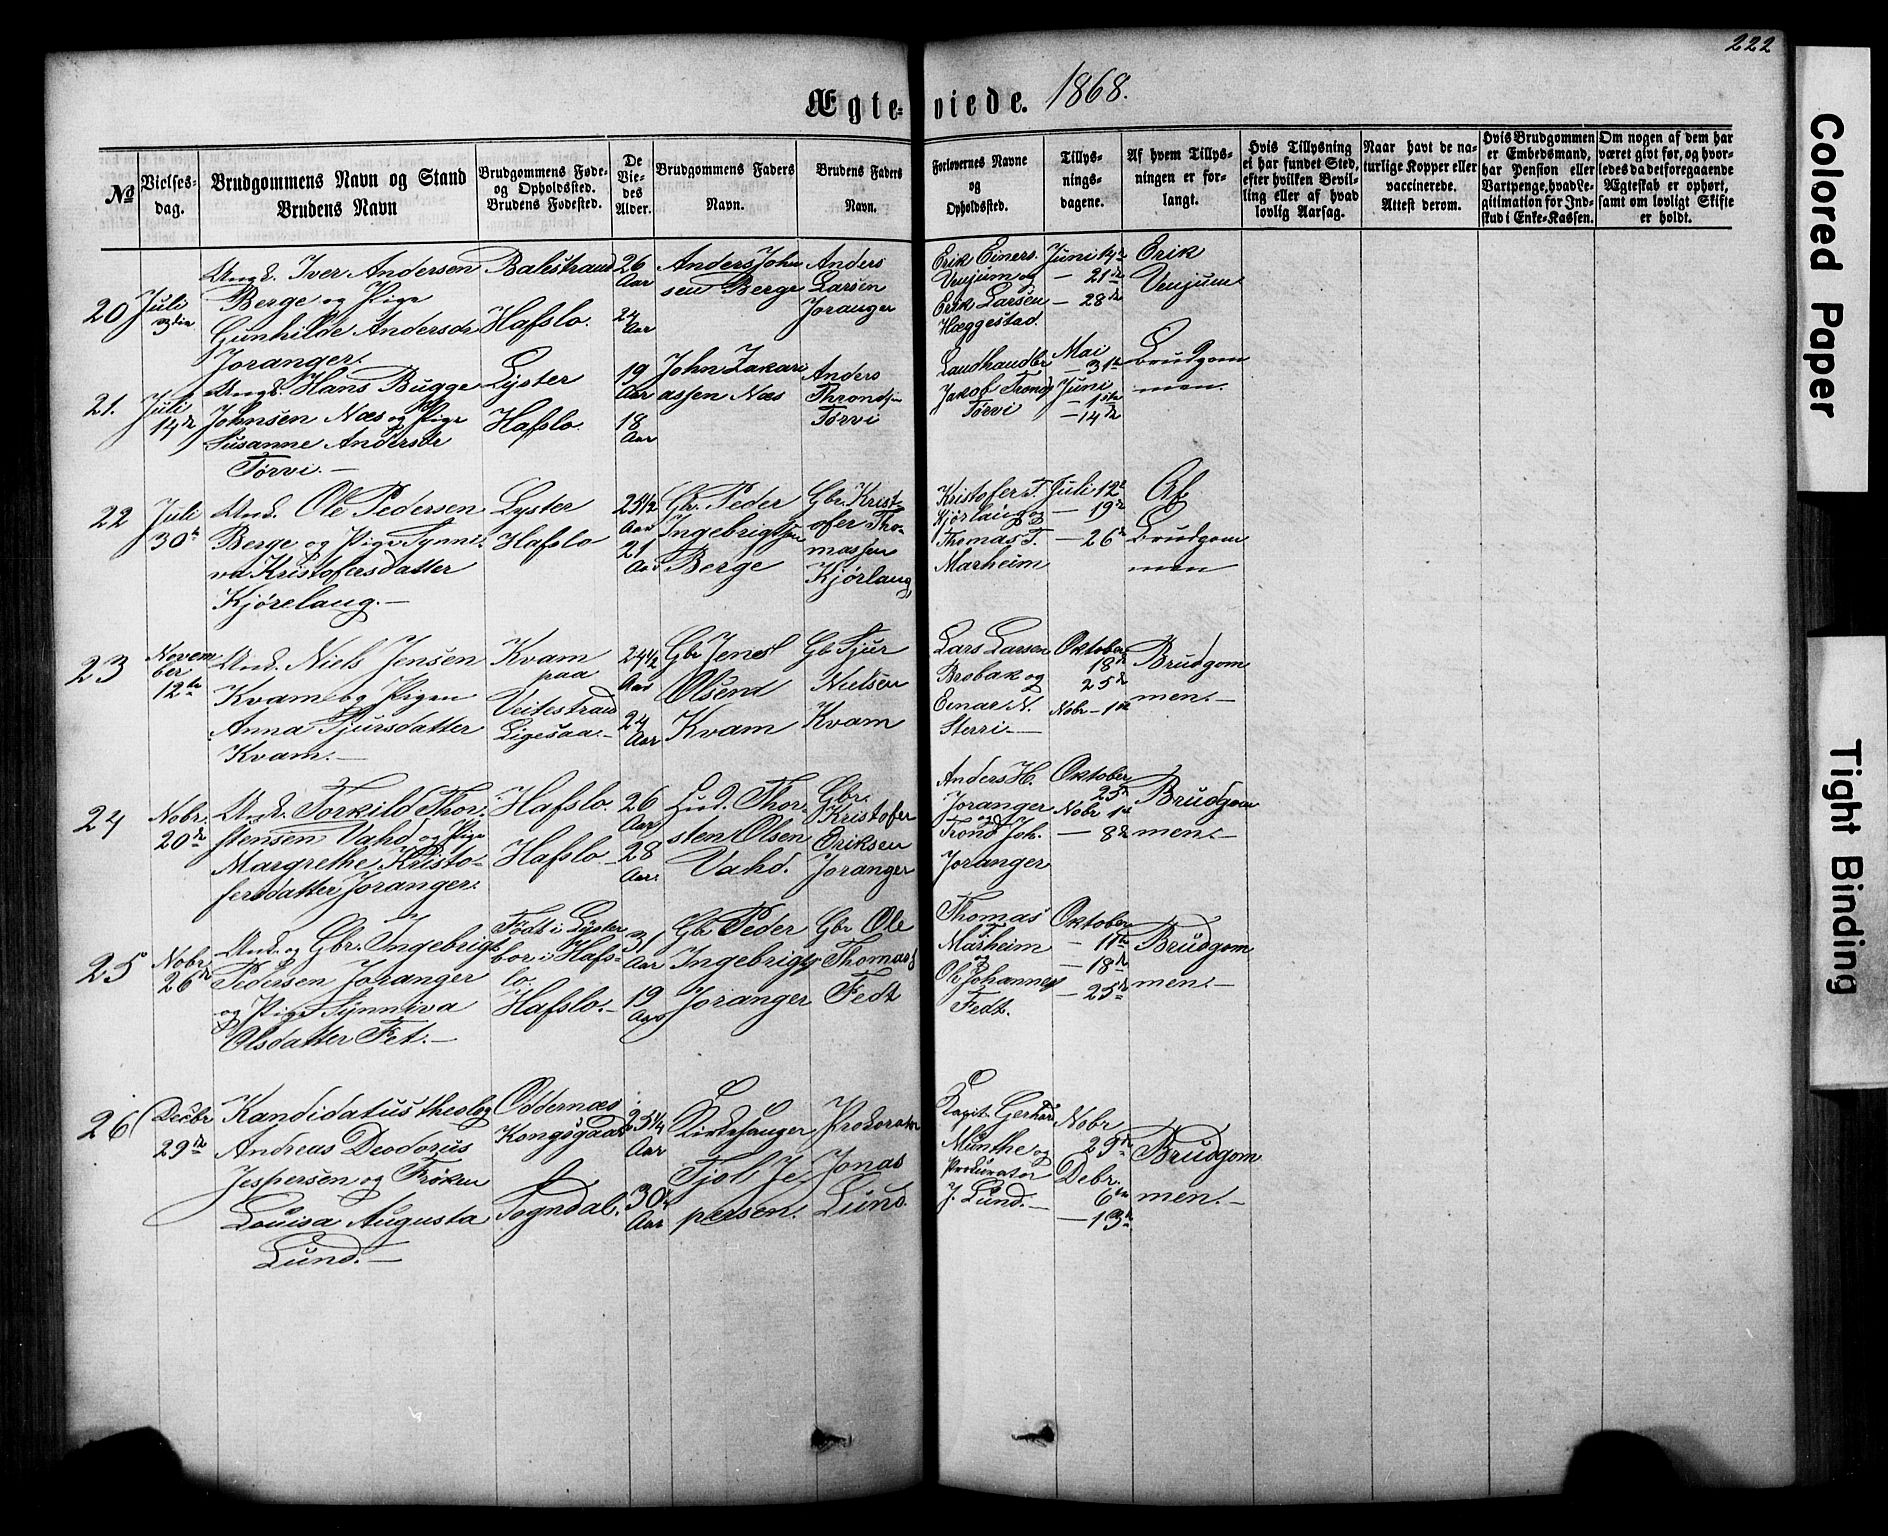 222
Ægte-viede. 1868.
No
Vielses-
dag.
Brudgommens Navn og Stand
Brudens Navn
Brudgommens Føde-
og Opholdssted.
Brudens Fødested.
De
Vie-
des
Alder.
Brudgommens Faders
Navn.
Brudens Faders
Navn.
Forlovernes Navne
og
Opholdssted.
Tillys-
nings-
dagene.
Af hvem Tillys-
ningen er for-
langt.
Hvis Tillysning
ei har fundet Sted,
efter hvilken Bevil-
ling eller af hvad
lovlig Aarsag.
Naar havt de na-
turlige Kopper eller
vaccinerede.
Attest derom.
Hvis Brudgommen
er Embedsmand,
har Pension eller
Vartpenge, hvad Le-
gitimation for Ind-
skud i Enke-Kassen.
Om nogen af dem har
været givt før, og hvor-
ledes da det foregaaende
Ægteskab er ophørt,
samt om lovligt Skifte
er holdt.
20
Juli
3die
Ungk. Iver Andersen
Berge og Pige
Gunhilde Andersdr
Joranger.
Balestrand
Hafslo.
26
Aar
24
Aar
Anders John
sen Berge
Anders
Larsen
Joranger
Erik Einers.
Venjum og
Erik Larsen
Hæggestad.
Juni 14de
— 21de
— 28de
Erik
Venjum
21.
Juli
14de
Ungk. Hans Bugge
Johnsen Næs og Pige
Susanne Andersdr
Tørvi. —
Lyster
Hafslo.
19
Aar
18
Aar
John Zakari
assen Næs
Anders
Throndsen
Tørvi
Landhandler
Jakob Trondsen
Tørvi
Mai
— 31te
Juni
— 1ste
— 14de
Brudgom
men.
22
Juli
30te
Ungk. Ole Pedersen
Berge og Pige Synne-
va Kristofersdatter
Kjørelaug. —
Lyster
Hafslo
25 1/2
Aar
21
Aar
Gbr. Peder
Ingebrigtsen
Berge
Gbr. Krist-
ofer Tho-
massen
Kjørlaug
Kristofer T.
Kjørlaug og
Thomas T.
Marheim
Juli 12te
— 19de
— 26de
Af
Brudgom
men
23
Novem
ber
12te
Ungk. Niels Jensen
Kvam og Pigen
Anna Sjursdatter
Kvam. —
Kvam
paa
Veitestrand
Ligesaa. —
24 1/2
Aar
24
Aar
Gbr Jens
Olsen
Kvam
Gb Sjur
Nielsen
Kvam
Lars Larsen
Brobak og
Einar N.
Sterri. —
Oktober
18de
25de
Nobr — 1ste
Brudgom
men. —
24
Nobr.
20de
Ungk. Torkild Thor-
stensen Vahd og Pige
Margrethe Kristo-
fersdatter Joranger.
Hafslo.
Hafslo
26
Aar
28
Aar.
Hud. Thor
sten Olsen
Vahd.
Gbr.
Kristofer
Eriksen
Joranger
Anders H.
Joranger
og
Trond Joh.
Joranger
Oktober
25de
Nobr 1ste
— 8de
Brudgom
men. —
25
Nobr.
26de
Ungk. og Gbr. Ingebrigt
Pedersen Joranger
og Pige Synneva
Olsdatter Fet. —
Født i Lyster
bor i Hafs-
lo.
Hafslo. —
31
Aar
19
Aar
Gbr Peder
Ingebrigts
Joranger
Gbr Ole
Thomass
Fedt
Thomas
T.
Marheim
og
Ole Johannes
Fedt.
Oktober
— 11te
— 18de
— 25de
Brudgom
men. —
26
Decbr
29de
Kandidatus theolog
Andreas Deodorus
Jespersen og Frøken
Louisa Augusta
Lund. —
Oddernæs
Kongsgaard
Sogndal.
25 1/4
Aar
30 1/4
Aar
Kirkesanger
Fjol Je-
persen.
Prokurator
Jonas
Lund
Kapit. Gerhard
Munthe og
Prokurator
J. Lund. —
Nobr
29de
Debr.
6te
— 13de
Brudgom
men. —
Colored Paper
Tight Binding